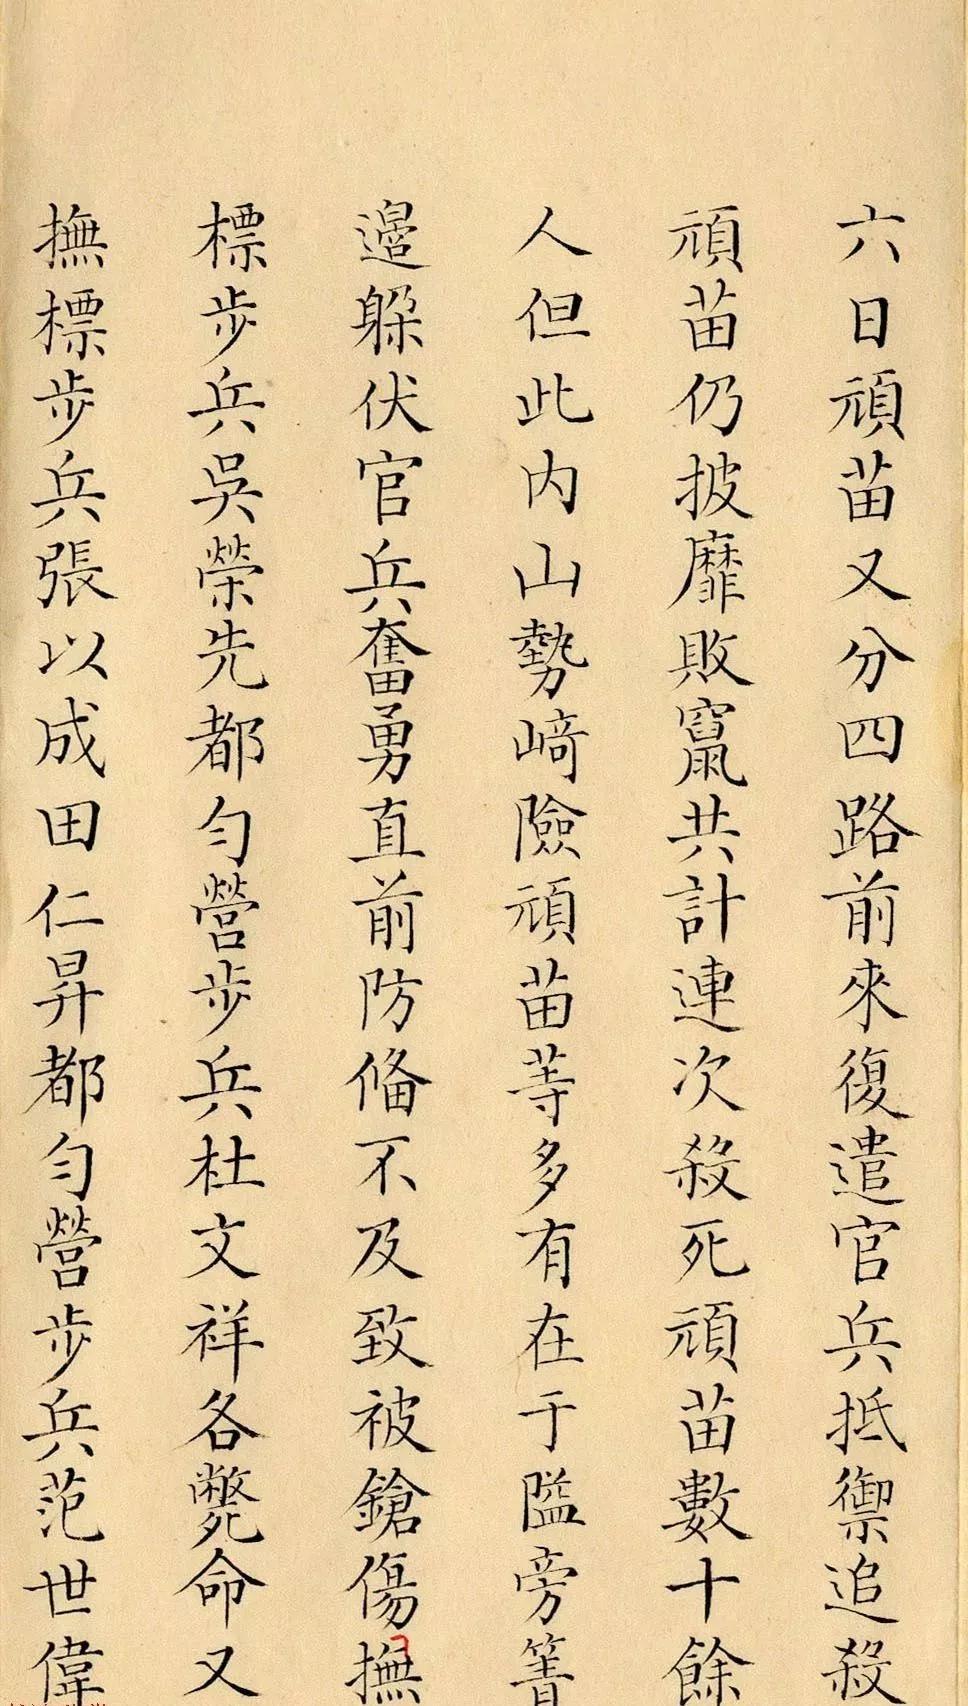 六日頑苗又分四路前來復遣官兵抵禦追殺
頑苗仍披靡敗竄共計連次殺死頑苗數十餘
人但此内山勢崎險頑苗等多有在于隘旁箐
邊躲伏官兵奮勇直前防俻不及致被鎗傷撫
標步兵吳榮先都勻營步兵杜文祥各斃命又
撫標步兵張以成田仁昇都勻營步兵范世偉